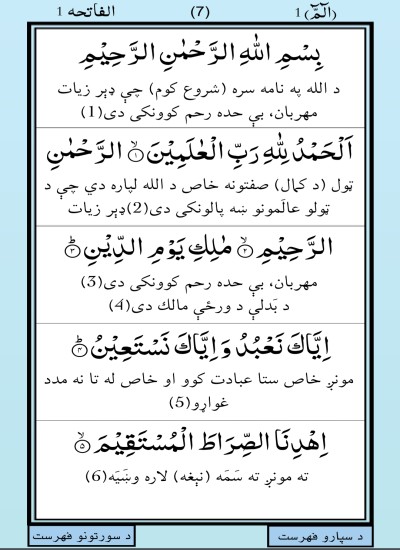 الٓمّٓ(1) (7) الفاتحه 1
بِسْمِ اللّٰهِ الرَّحْمٰنِ الرَّحِيْمِ
د الله په نامه سره (شروع كوم) چې ډېر زيات
مهربان، بې حده رحم كوونكى دى(1)
اَلْحَمْدُ لِلّٰهِ رَبِّ الْعٰلَمِيْنَ۝۱ الرَّحْمٰنِ
ټول (د كمال) صفتونه خاص د الله لپاره دي چې د
ټولو عالَمونو ښه پالونكى دى(2)ډېر زيات
الرَّحِيْمِ۝۲ مٰلِكِ يَوْمِ الدِّيْنِ۝۳
مهربان، بې حده رحم كوونكى دى(3)
د بَدلې د ورځې مالك دى(4)
اِيَّاكَ نَعْبُدُ وَاِيَّاكَ نَسْتَعِيْنُ۝۴
مونږ خاص ستا عبادت كوو او خاص له تا نه مدد
غواړو(5)
اِهْدِنَا الصِّرَاطَ الْمُسْتَقِيْمَ۝۵
ته مونږ ته سَمَه (نېغه) لاره وښَيَه(6)
د سپارو فهرست
د سورتونو فهرست